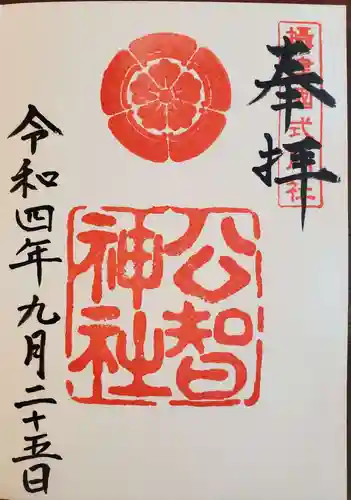 奉拝
摂津國式内社
公智
神社
令和四年九月二十五日